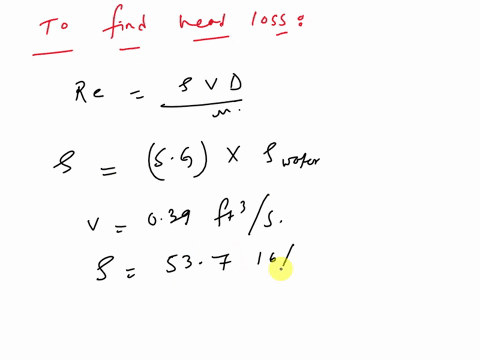 To find head loss:
Re = ρ V D / μ
ρ = (S.G) × ρ water
V = 0.39 ft³/s.
ρ = 53.7 lb/